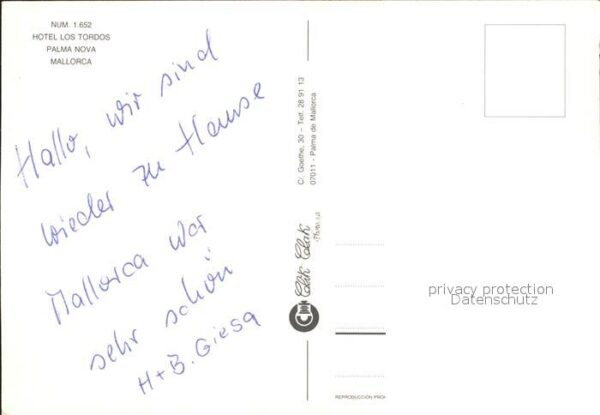 NUM. 1.652
HOTEL LOS TORDOS
PALMA NOVA
MALLORCA
Hallo, wir sind
wieder zu Hause
Mallorca war
sehr schön
H+B. Giesa
C/. Goethe, 30 – Telf. 28 91 13
07011 - Palma de Mallorca
Clik Clak
privacy protection
Datenschutz
REPRODUCCION PROH